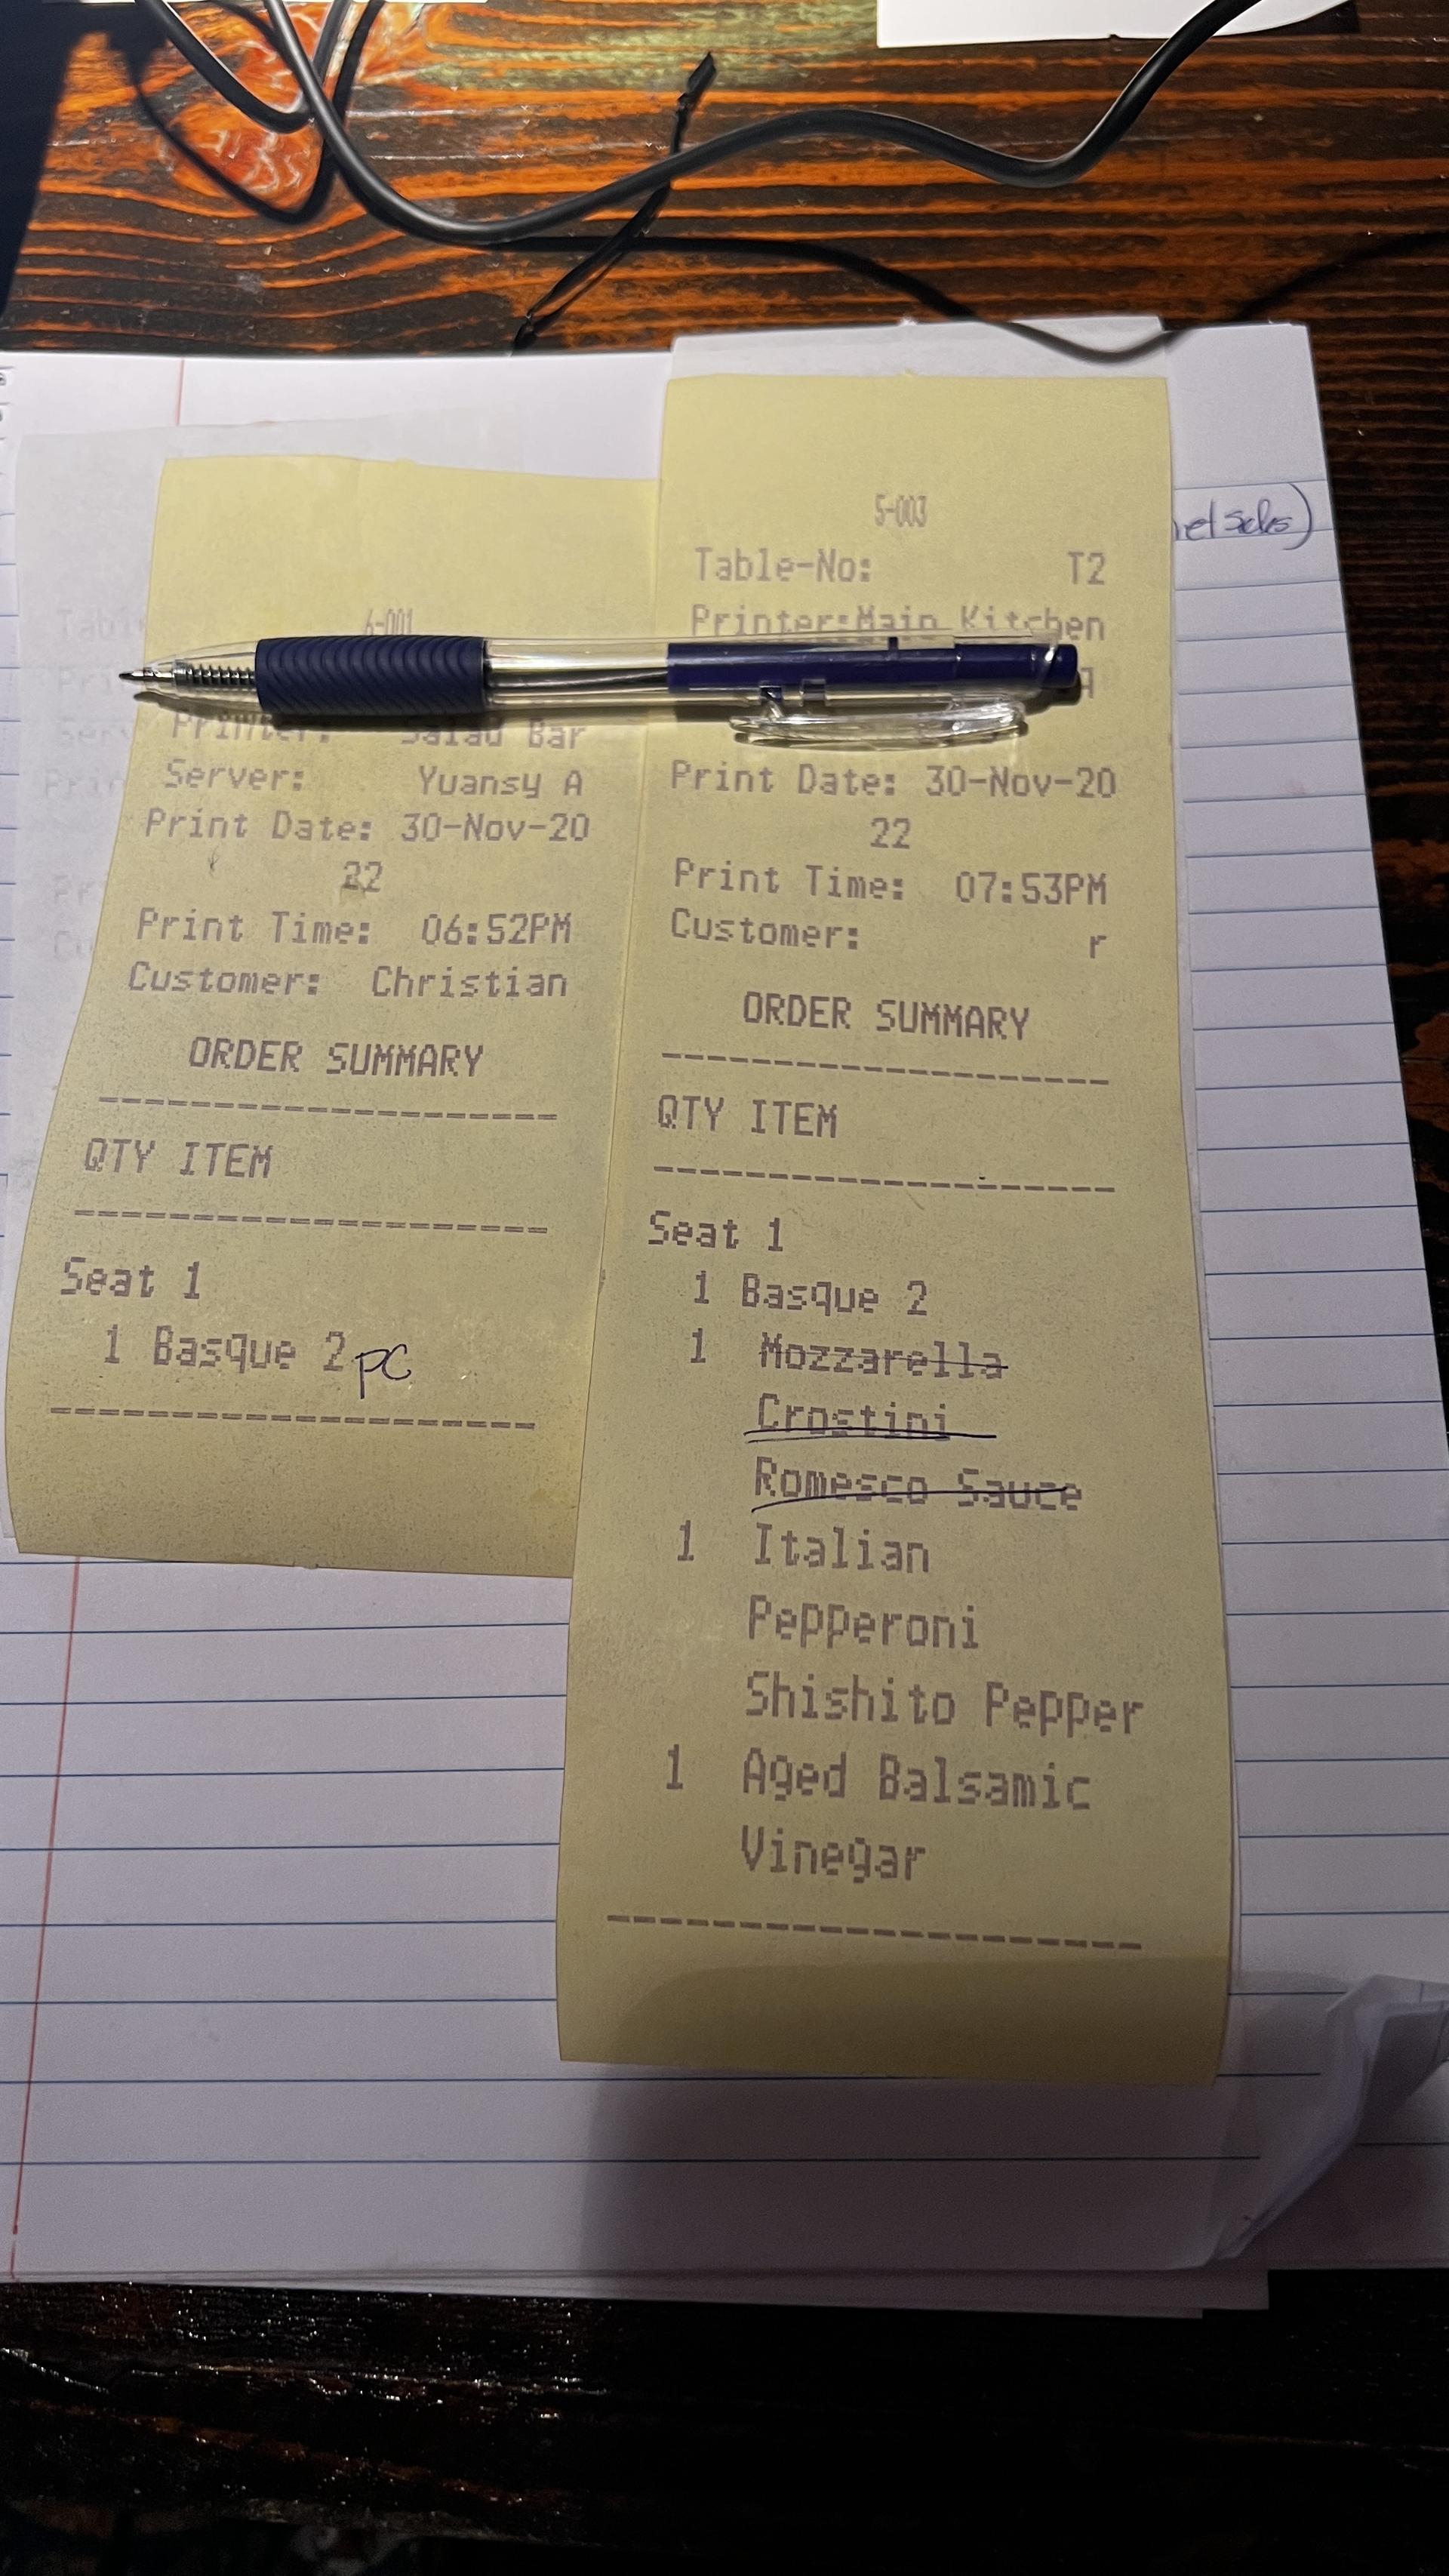 6-001
Printer: Salad Bar
Server: Yuansy A
Print Date: 30-Nov-20
22
Print Time: 06:52PM
Customer: Christian
ORDER SUMMARY
QTY ITEM
Seat 1
1 Basque 2 pc
5-003
Table-No: T2
Printer:Main Kitchen
Print Date: 30-Nov-20
22
Print Time: 07:53PM
Customer: r
ORDER SUMMARY
QTY ITEM
Seat 1
1 Basque 2
1 Mozzarella
Crostini
Romesco Sauce
1 Italian
Pepperoni
Shishito Pepper
1 Aged Balsamic
Vinegar